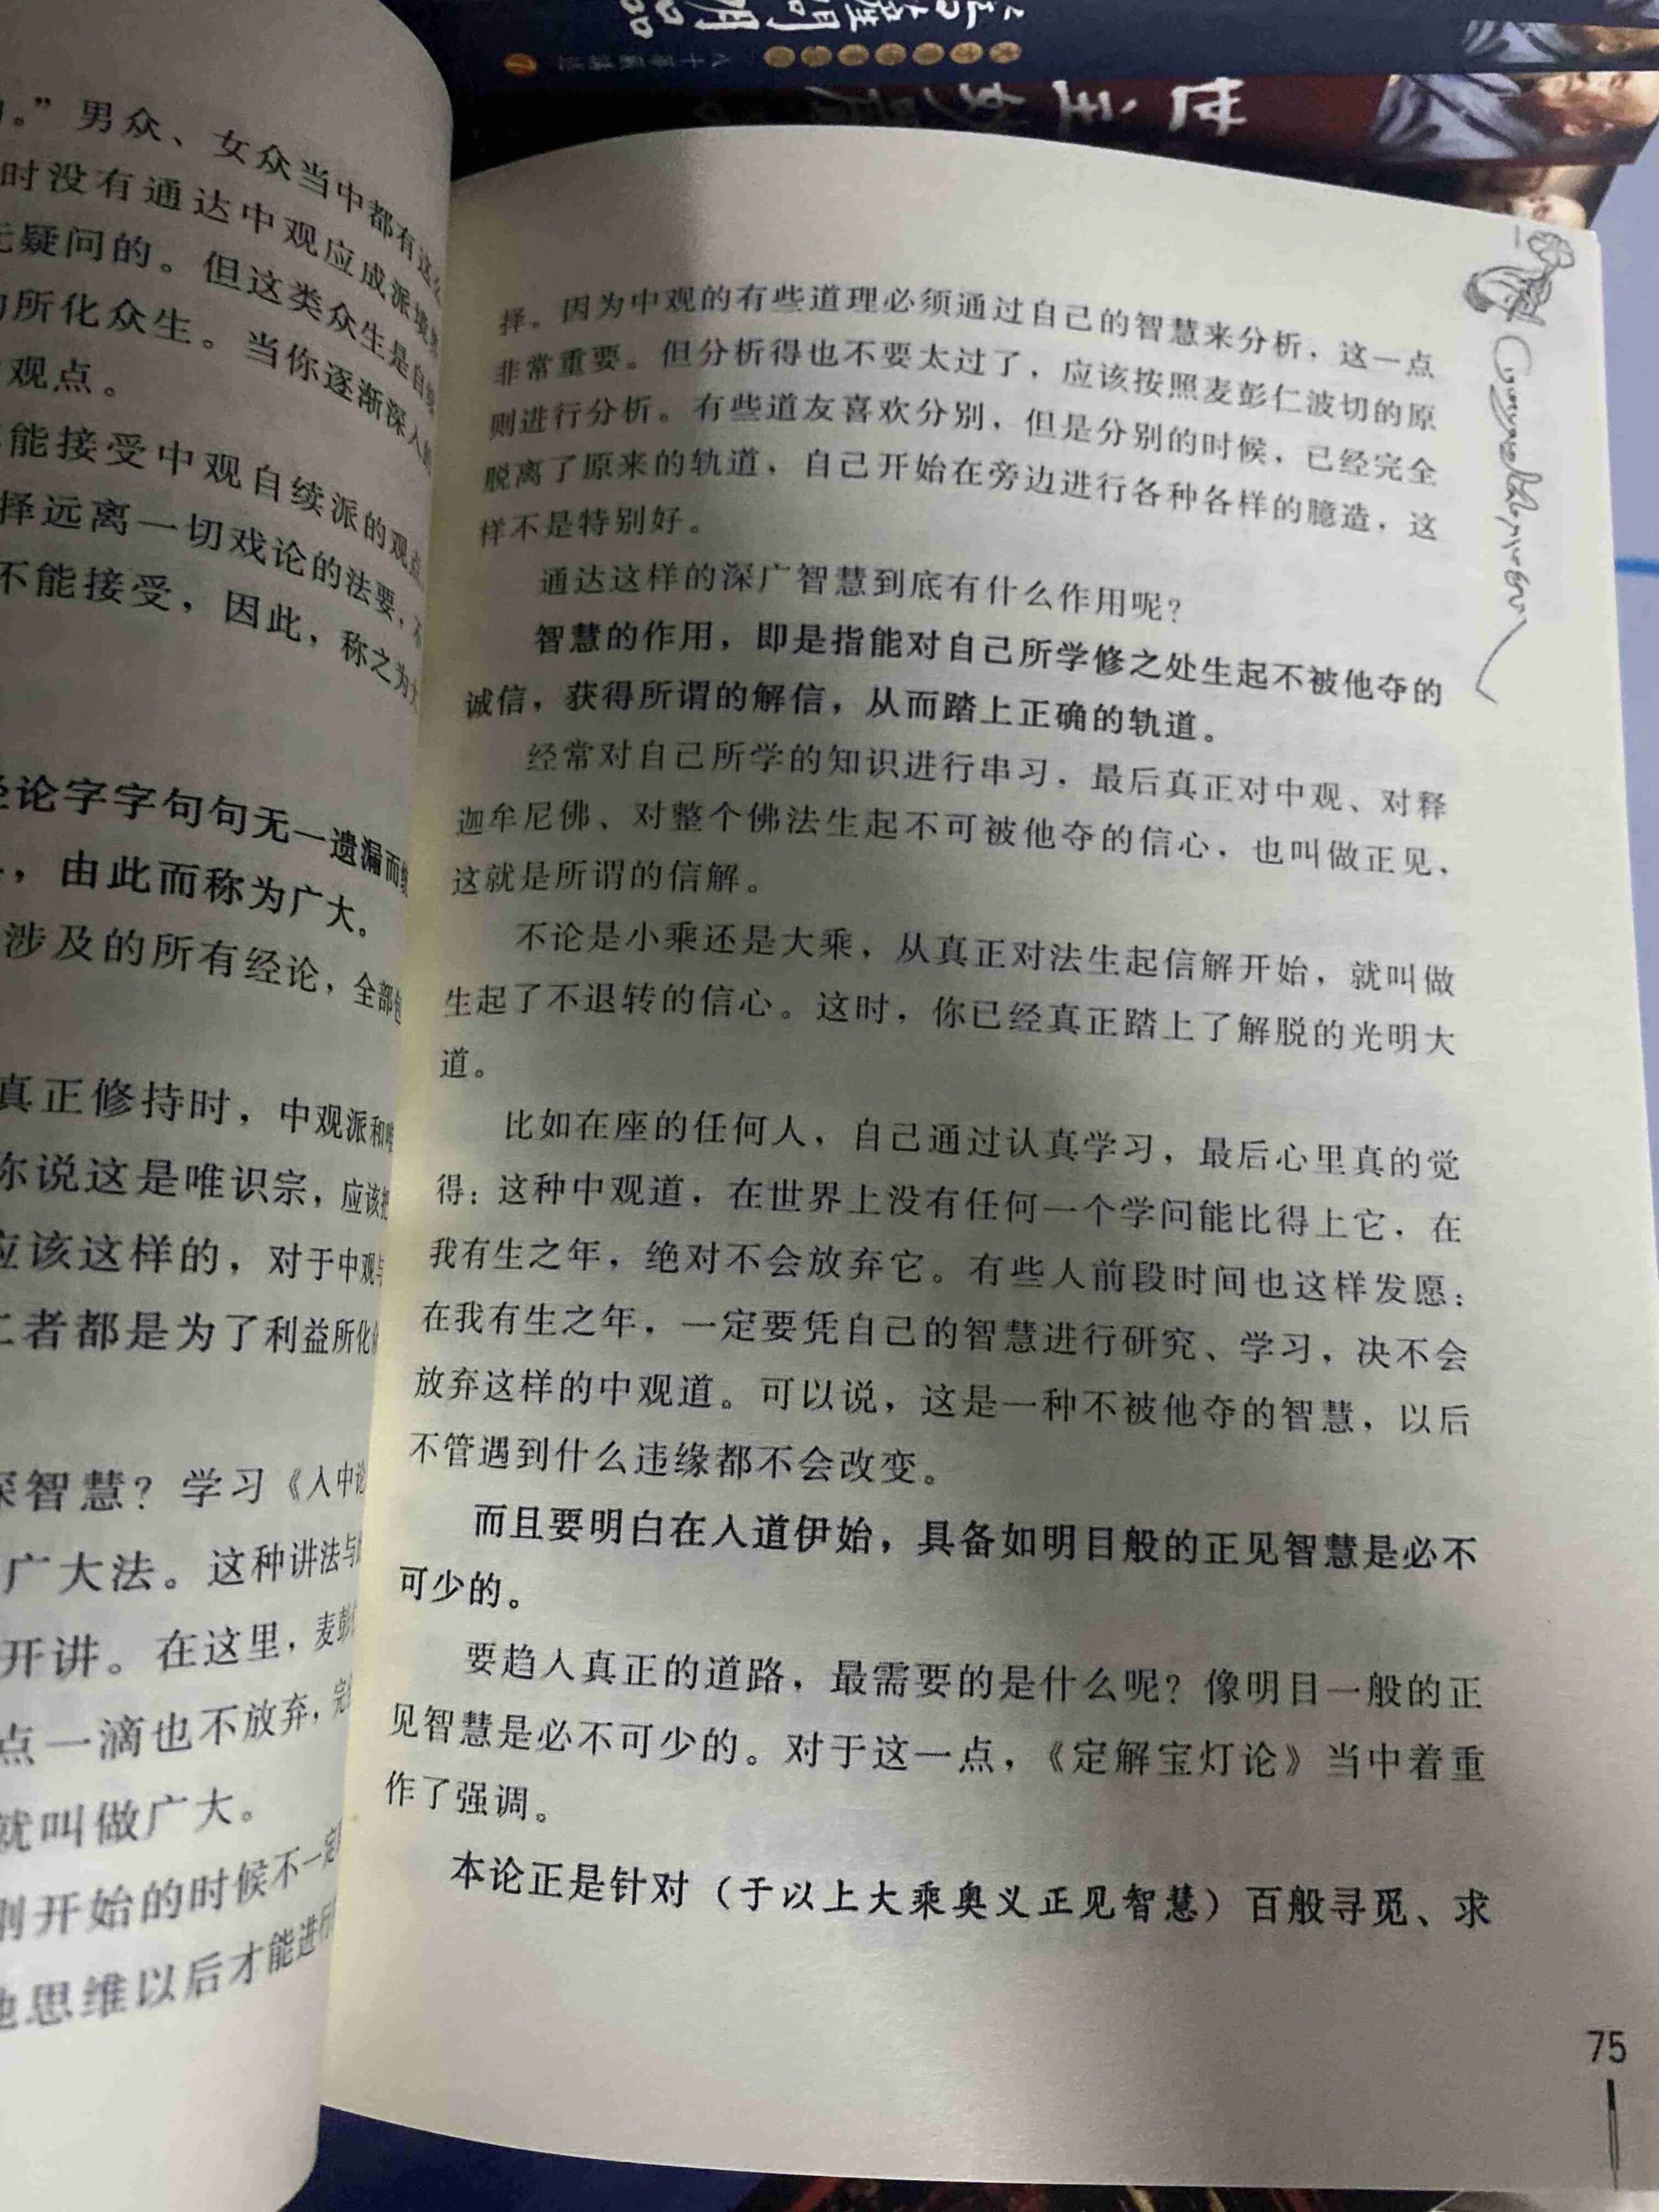 。”男众、女众当中都有这
时没有通达中观应成派境
疑问的。但这类众生是自续
所化众生。当你逐渐深入
观点。
能接受中观自续派的观点
择远离一切戏论的法要，
不能接受，因此，称之为
论字字句句无一遗漏而
，由此而称为广大。
涉及的所有经论，全部
真正修持时，中观派和
你说这是唯识宗，应该
应该这样的，对于中观与
二者都是为了利益所化
深智慧？学习《入中论
广大法。这种讲法与
开讲。在这里，麦彭
点一滴也不放弃，完
就叫做广大。
别开始的时候不一定
他思维以后才能进行
择。因为中观的有些道理必须通过自己的智慧来分析，这一点
非常重要。但分析得也不要太过了，应该按照麦彭仁波切的原
则进行分析。有些道友喜欢分别，但是分别的时候，已经完全
脱离了原来的轨道，自己开始在旁边进行各种各样的臆造，这
样不是特别好。
通达这样的深广智慧到底有什么作用呢？
智慧的作用，即是指能对自己所学修之处生起不被他夺的
诚信，获得所谓的解信，从而踏上正确的轨道。
经常对自己所学的知识进行串习，最后真正对中观、对释
迦牟尼佛、对整个佛法生起不可被他夺的信心，也叫做正见，
这就是所谓的信解。
不论是小乘还是大乘，从真正对法生起信解开始，就叫做
生起了不退转的信心。这时，你已经真正踏上了解脱的光明大
道。
比如在座的任何人，自己通过认真学习，最后心里真的觉
得：这种中观道，在世界上没有任何一个学问能比得上它，在
我有生之年，绝对不会放弃它。有些人前段时间也这样发愿：
在我有生之年，一定要凭自己的智慧进行研究、学习，决不会
放弃这样的中观道。可以说，这是一种不被他夺的智慧，以后
不管遇到什么违缘都不会改变。
而且要明白在入道伊始，具备如明目般的正见智慧是必不
可少的。
要趋入真正的道路，最需要的是什么呢？像明目一般的正
见智慧是必不可少的。对于这一点，《定解宝灯论》当中着重
作了强调。
本论正是针对（于以上大乘奥义正见智慧）百般寻觅、求
75